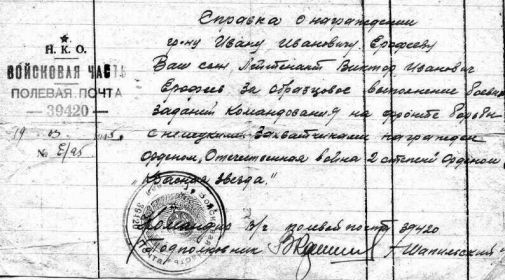 Справка о награждении
гр-ну Ивану Ивановичу Ерофееву
Н.К.О.
ВОЙСКОВАЯ ЧАСТЬ
ПОЛЕВАЯ ПОЧТА
— 39420 —
19 03
№
Ваш сын, Лейтенант Виктор Иванович
Ерофеев за образцовое выполнение боевых
заданий командования на фронте борьбы
с немецкими захватчиками награжден
орденом, Отечественная война 2 степени Орденом
"Красная звезда."
Командир в/ч полевой почты 39420
Подполковник